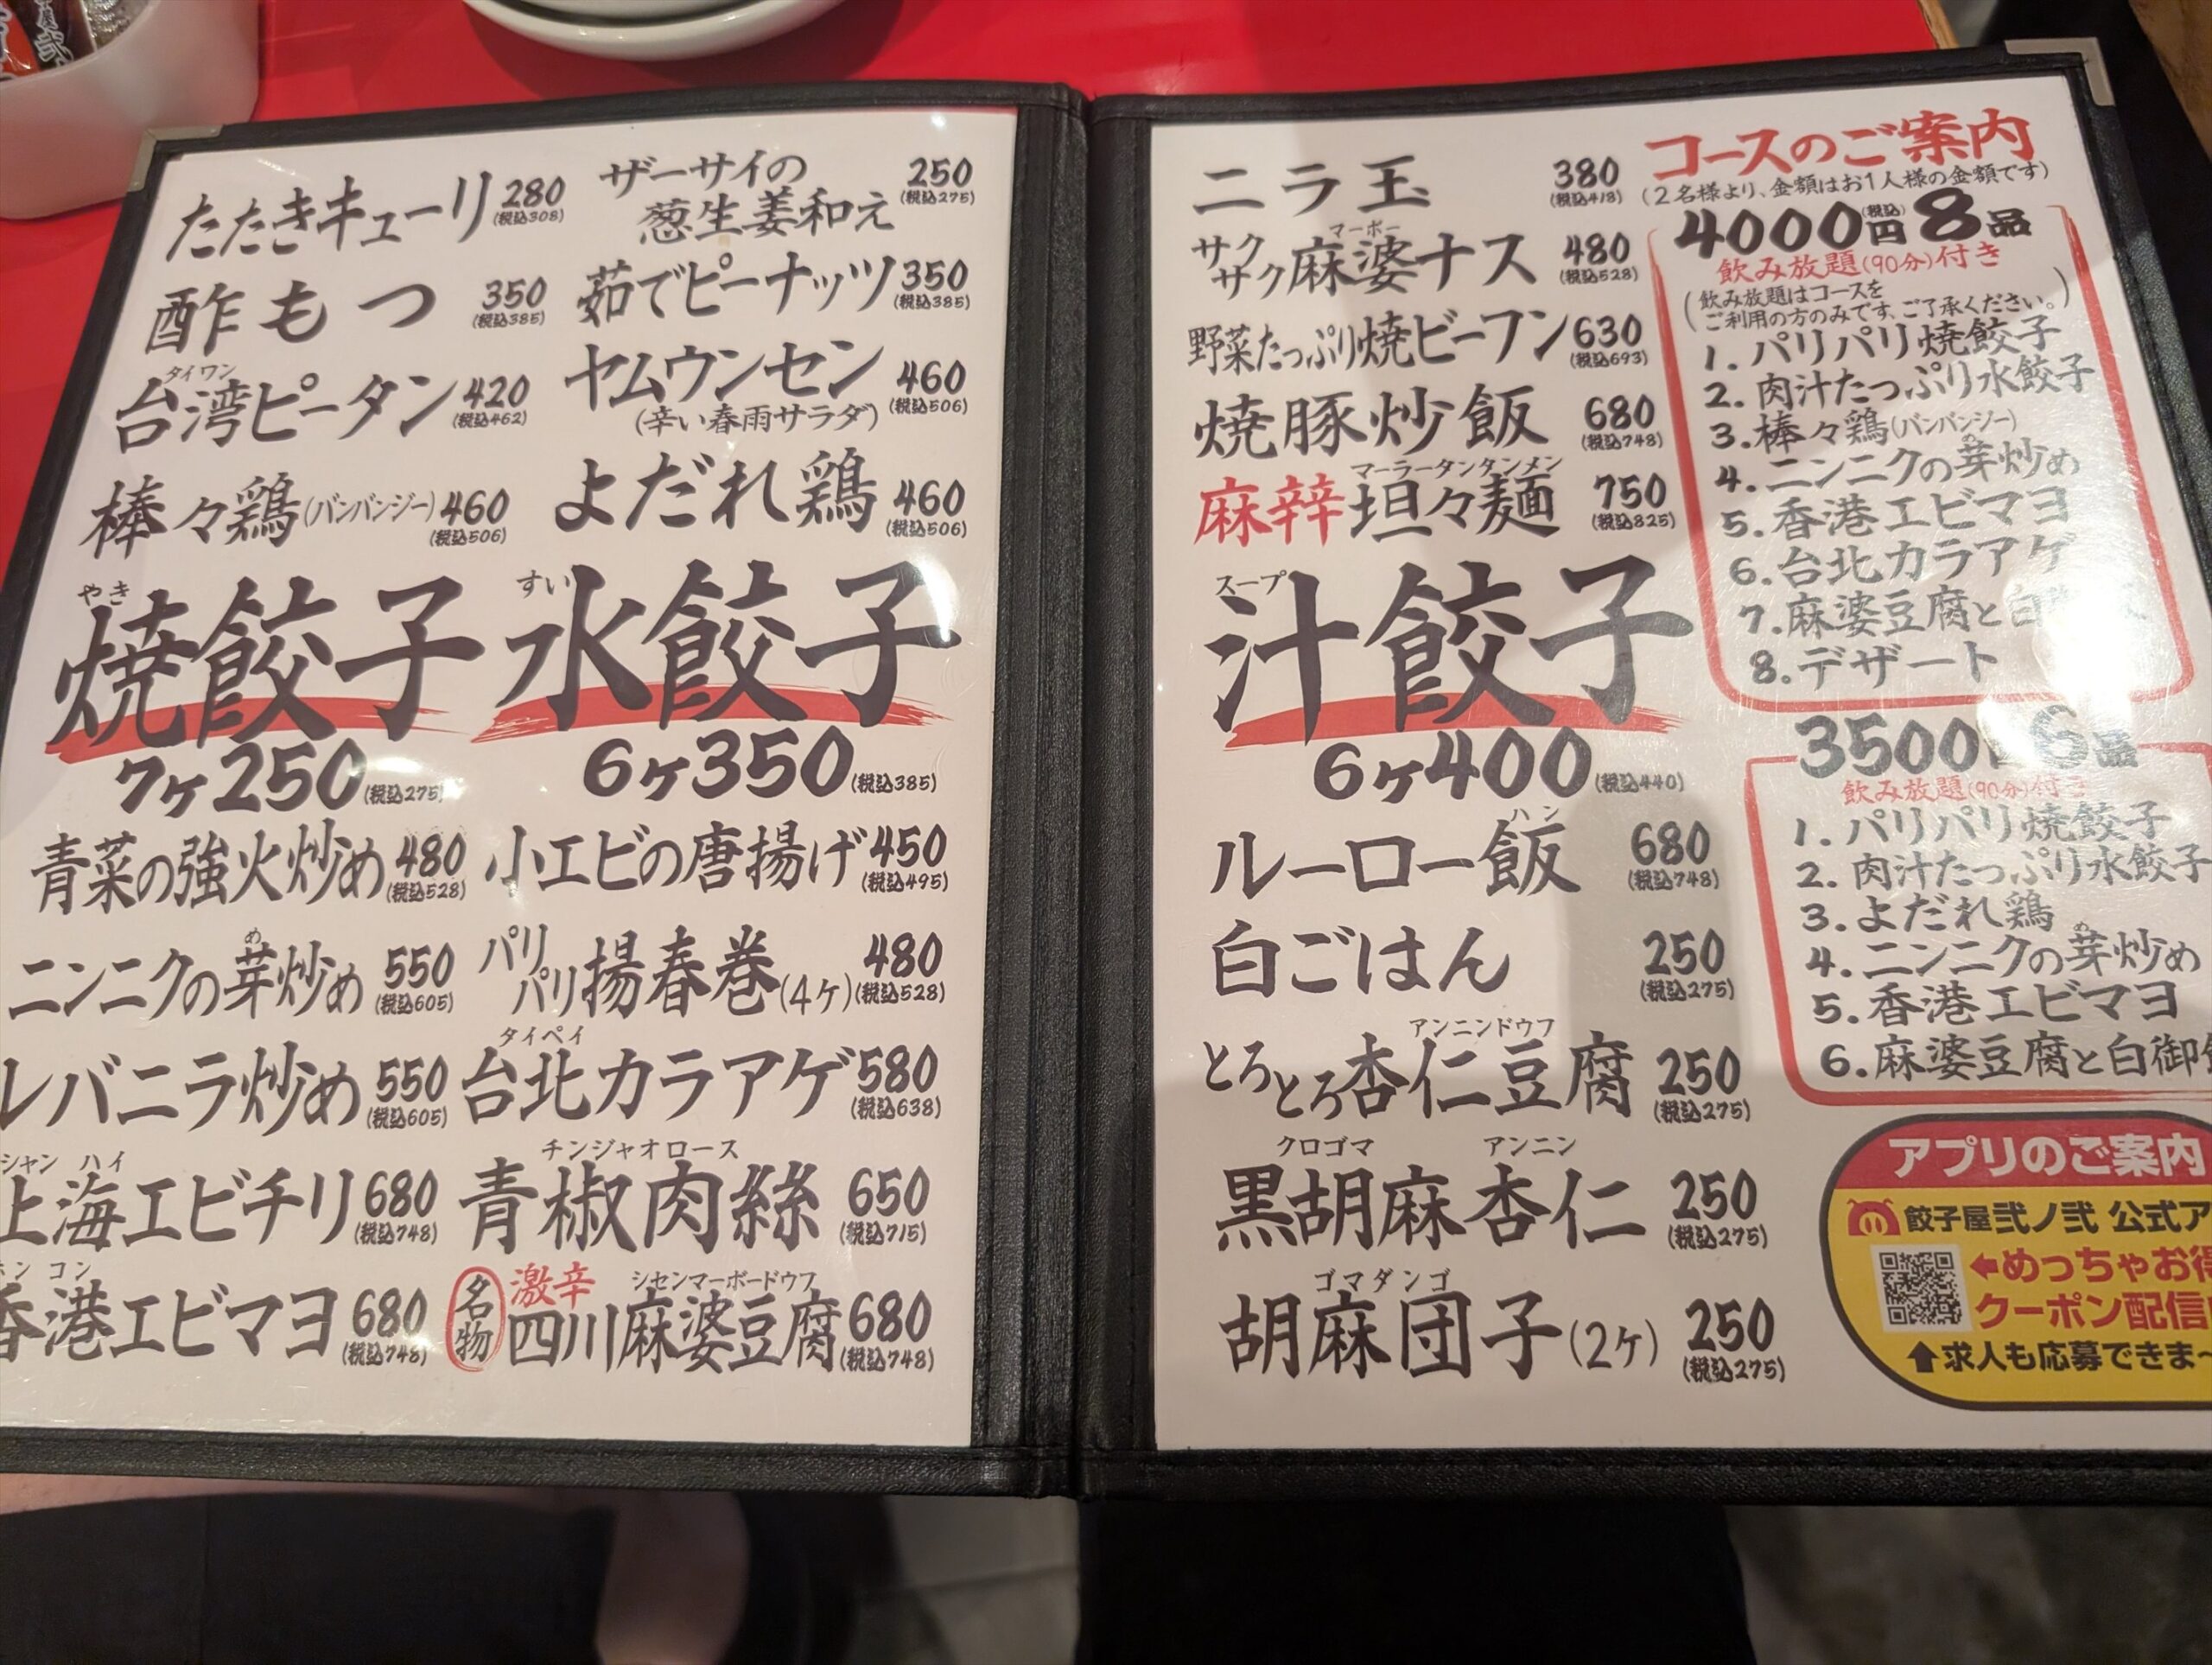 たたきキューリ 280
(税込308)
ザーサイの
葱生姜和え 250
(税込275)
酢もつ 350
(税込385)
茹でピーナッツ 350
(税込385)
タイワン
台湾ピータン 420
(税込462)
ヤムウンセン 460
(辛い春雨サラダ) (税込506)
棒々鶏(バンバンジー) 460
(税込506)
よだれ鶏 460
(税込506)
やき
焼餃子
7ヶ250(税込275)
すい
水餃子
6ヶ350(税込385)
青菜の強火炒め 480
(税込528)
小エビの唐揚げ 450
(税込495)
め
ニンニクの芽炒め 550
(税込605)
パリ
パリ揚春巻(4ヶ) 480
(税込528)
レバニラ炒め 550
(税込605)
タイペイ
台北カラアゲ 580
(税込638)
シャン ハイ
上海エビチリ 680
(税込748)
チンジャオロース
青椒肉絲 650
(税込715)
ホン コン
香港エビマヨ 680
(税込748)
名物
激辛
シセンマーボードウフ
四川麻婆豆腐 680
(税込748)
ニラ玉 380
(税込418)
マーボー
サクサク麻婆ナス 480
(税込528)
野菜たっぷり焼ビーフン 630
(税込693)
焼豚炒飯 680
(税込748)
マーラータンタンメン
麻辛坦々麺 750
(税込825)
スープ
汁餃子
6ヶ400(税込440)
ハン
ルーロー飯 680
(税込748)
白ごはん 250
(税込275)
アンニンドウフ
とろとろ杏仁豆腐 250
(税込275)
クロゴマ アンニン
黒胡麻杏仁 250
(税込275)
ゴマダンゴ
胡麻団子(2ヶ) 250
(税込275)
コースのご案内
(2名様より、金額はお1人様の金額です)
4000円(税込)8品
飲み放題(90分)付き
(飲み放題はコースを
ご利用の方のみです、ご了承ください。)
1. パリパリ焼餃子
2. 肉汁たっぷり水餃子
3. 棒々鶏(バンバンジー)
め
4. ニンニクの芽炒め
5. 香港エビマヨ
6. 台北カラアゲ
7. 麻婆豆腐と白
8. デザート
3500 6品
飲み放題(90分)付き
1. パリパリ焼餃子
2. 肉汁たっぷり水餃子
3. よだれ鶏
め
4. ニンニクの芽炒め
5. 香港エビマヨ
6. 麻婆豆腐と白御
アプリのご案内
餃子屋弐ノ弐 公式ア
←めっちゃお得
クーポン配信
↑求人も応募できま~